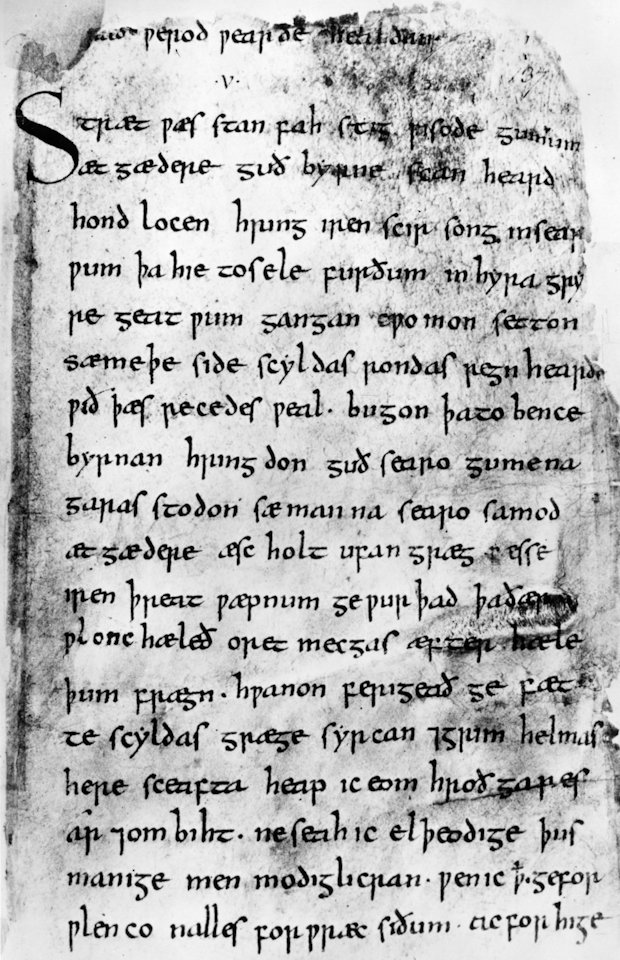 ƿerod ƿearde healdan
·v·
Stræt ƿæs stan fah stig ƿisode gumum
æt gædere guð byrne scan heard
hond locen hring iren scir song in sear
ƿum þa hie to sele furðum in hyra gry
re geat ƿum gangan cƿomon setton
sæmeþe side scyldas rondas regn hearde
ƿið þæs recedes ƿeal· bugon þa to bence
byrnan hring don guð searo gumena
garas stodon sæ manna searo samod
æt gædere æsc holt ufan græg esse
iren þreat ƿæpnum ge ƿurþad þa ðær
ƿlonc hæleð oret mecgas æfter hæle
þum frægn· hƿanon ferigeað ge fæt
te scyldas græge syrcan ⁊ grim helmas
here sceafta heap ic eom hroðgares
ar ⁊ ombiht· ne seah ic elþeodige þus
manige men modiglicran· ƿen ic ꝥ· ge for
ƿlenco nalles for ƿræc siðum· ac for hige